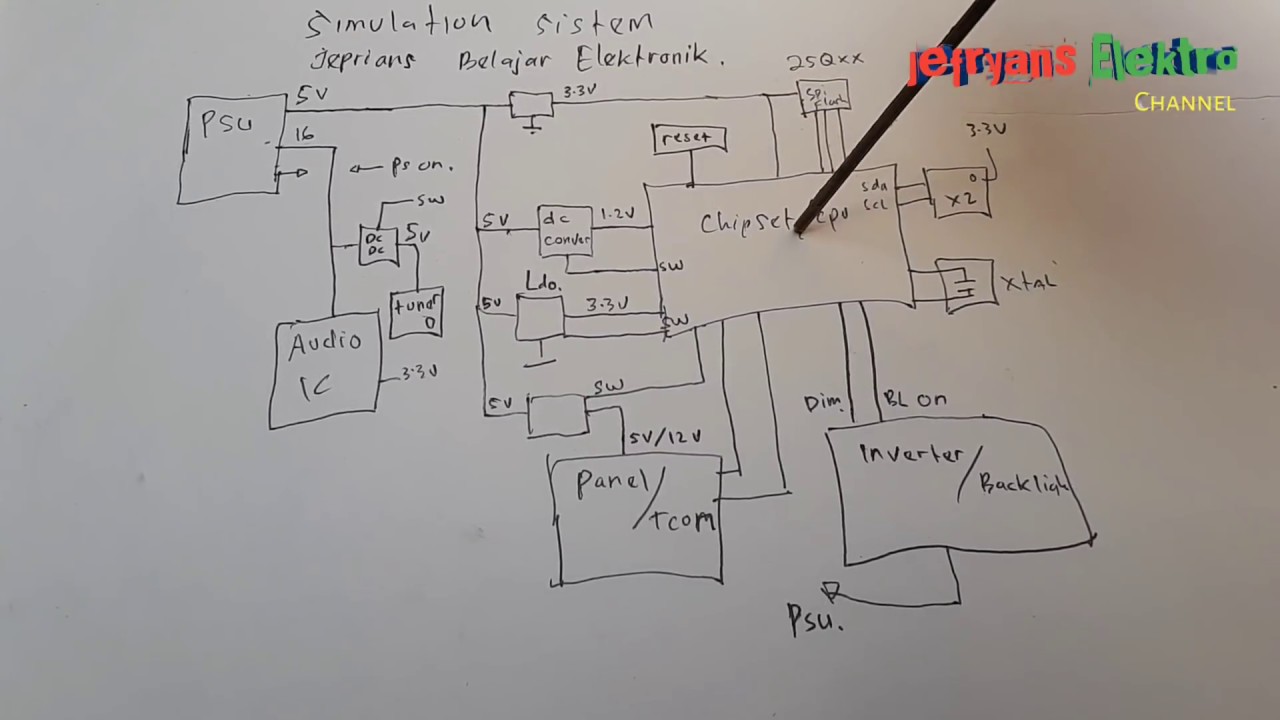 Simulation sistem
Jeprians Belajar Elektronik.
jefryans Elektro
CHANNEL
25Qxx
5V
3.3V
SPI
Flash
PSU
16
reset
3.3V
Ps on.
Sda
Scl
0
X2
SW
5V
dc
conver
1.2V
Chipset/cpu
DC
DC
5V
SW
XtAL
Ldo.
5V
3.3V
SW
tuner
0
Audio
IC
3.3V
SW
5V
Dim.
BL on
5V/12V
Panel/
tcom
Inverter/
Backligh
Psu.